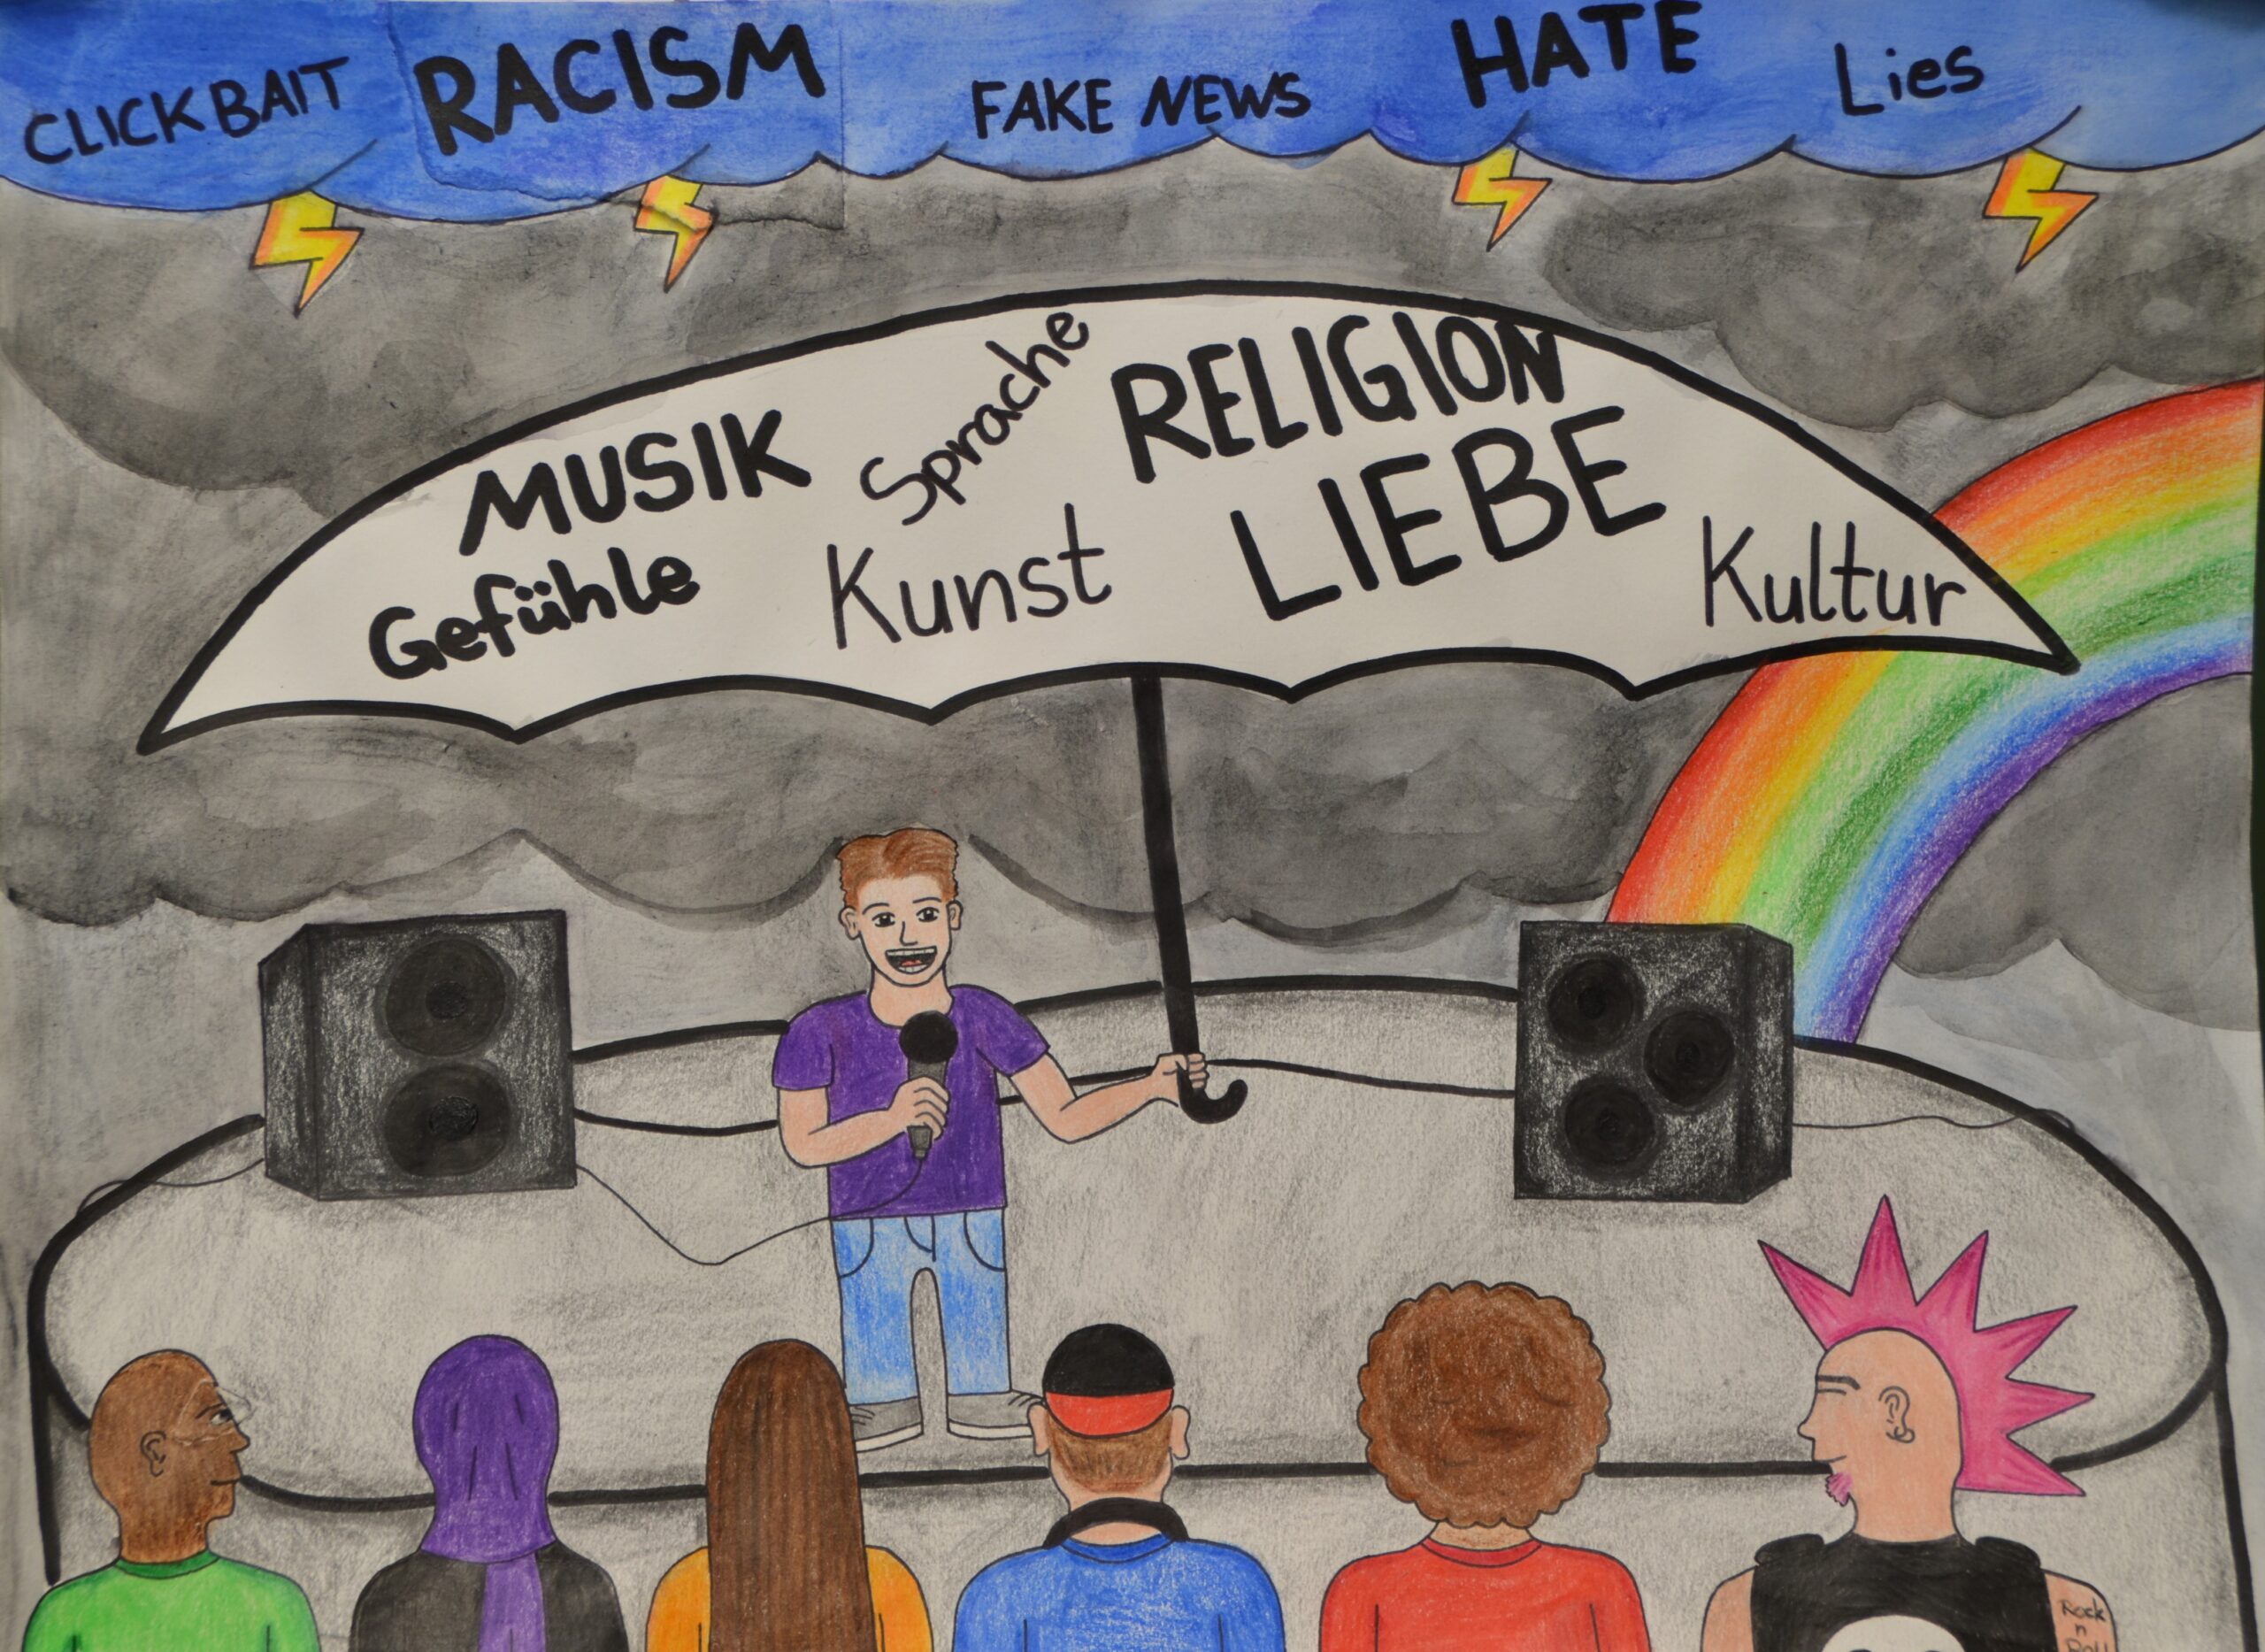 CLICKBAIT RACISM FAKE NEWS HATE Lies
MUSIK Sprache RELIGION
Gefühle Kunst LIEBE Kultur
Rock
n
Roll